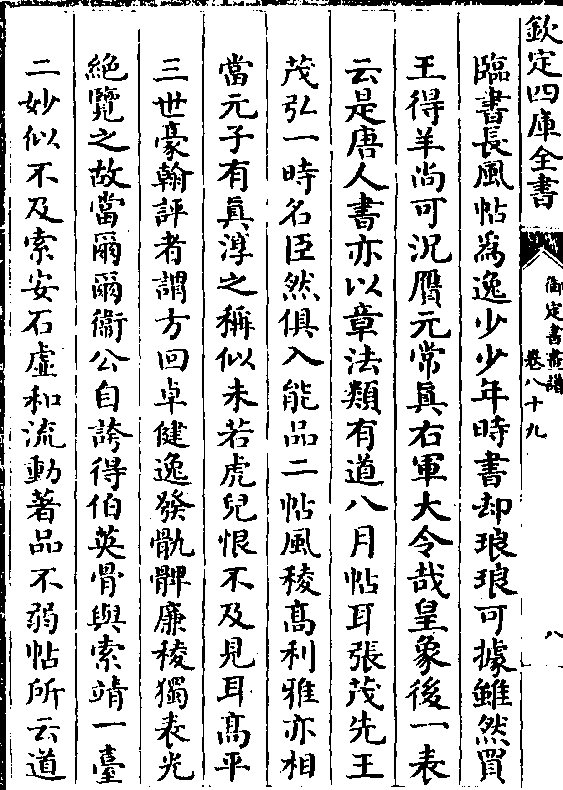 欽定四庫全書
御定書畫譜
卷八十九
八
臨書長風帖為逸少少年時書却琅琅可據雖然買
王得羊尚可況贋元常真右軍大令哉皇象後一表
云是唐人書亦以章法類有道八月帖耳張茂先王
茂弘一時名臣然俱入能品二帖風稜髙利雅亦相
當元子有真淳之稱似未若虎兒恨不及見耳髙平
三世豪翰評者謂方回卓健逸發骯髀廉稜獨表光
絶覽之故當爾爾衞公自誇得伯英骨與索靖一臺
二妙似不及索安石虚和流動著品不弱帖所云道